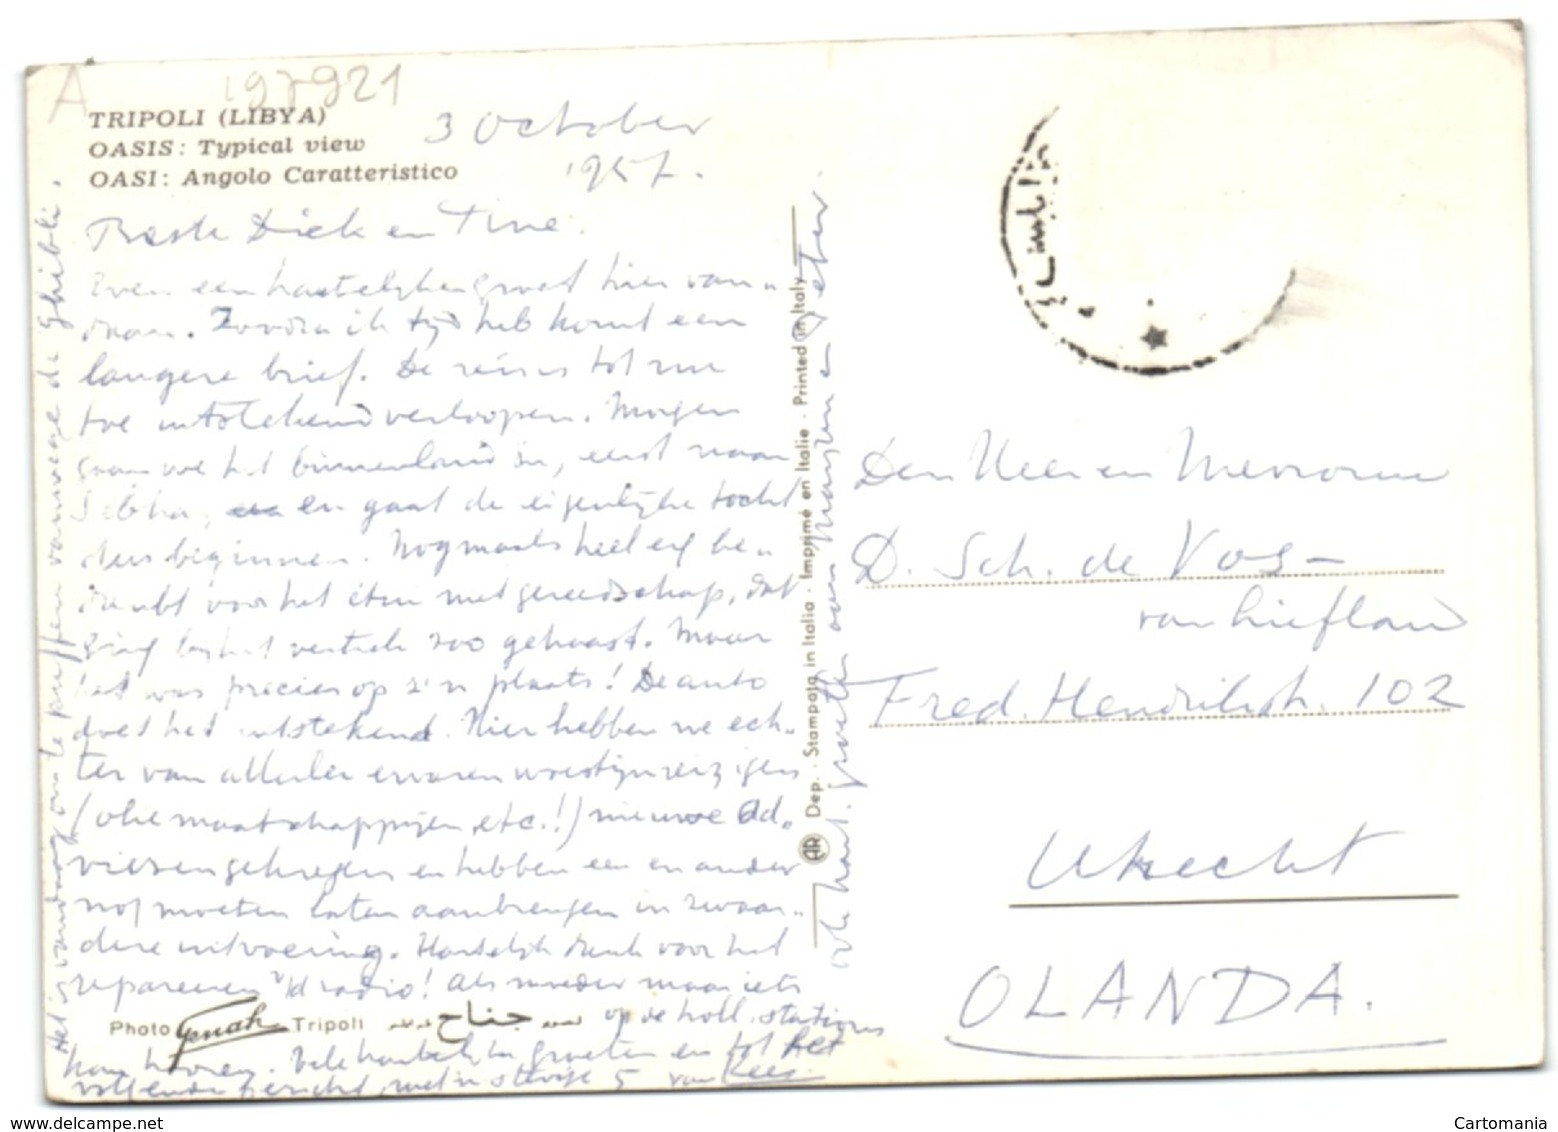 A 197921
TRIPOLI (LIBYA)
OASIS: Typical view
OASI: Angolo Caratteristico
3 October
1957.
Beste Dick en Tine.
Even een hartelijke groet hier van-
daan. Zodra ik tijd heb komt een
langere brief. De reis is tot nu
toe uitstekend verlopen. Morgen
gaan we het binnenland in, eerst naar
Sebha, en gaat de eigenlijke tocht
dus beginnen. Nogmaals heel erg be-
dankt voor het etui met gereedschap, dat
ging bij het vertrek zoo gehaast. Maar
het was precies op z'n plaats! De auto
doet het uitstekend. Hier hebben we ech-
ter van allerlei ervaren woestijnreizigers
(olie maatschappijen, etc.!) nieuwe ad-
viezen gekregen en hebben een en ander
nog moeten laten aanbrengen in zwaar-
dere uitvoering. Hartelijk dank voor het
repareeren v/d radio! Als moeder maar iets
op de holl. stations
kan hooren. Vele hartelijke groeten en tot het
volgende bericht, met n stevige 5 van Kees.
Het is vandaag om te puffen vanwege de ghibli.
ook hart. groeten aan Marijn en Peter
Photo Tripoli
جناح
AR Dep. - Stampata in Italia - Imprimé en Italie - Printed in Italy
Den Heer en Mevrouw
D. Sch. de Vos -
van Lieflan
Fred. Hendrikstr. 102
Utrecht
OLANDA.
www.delcampe.net
Cartomania